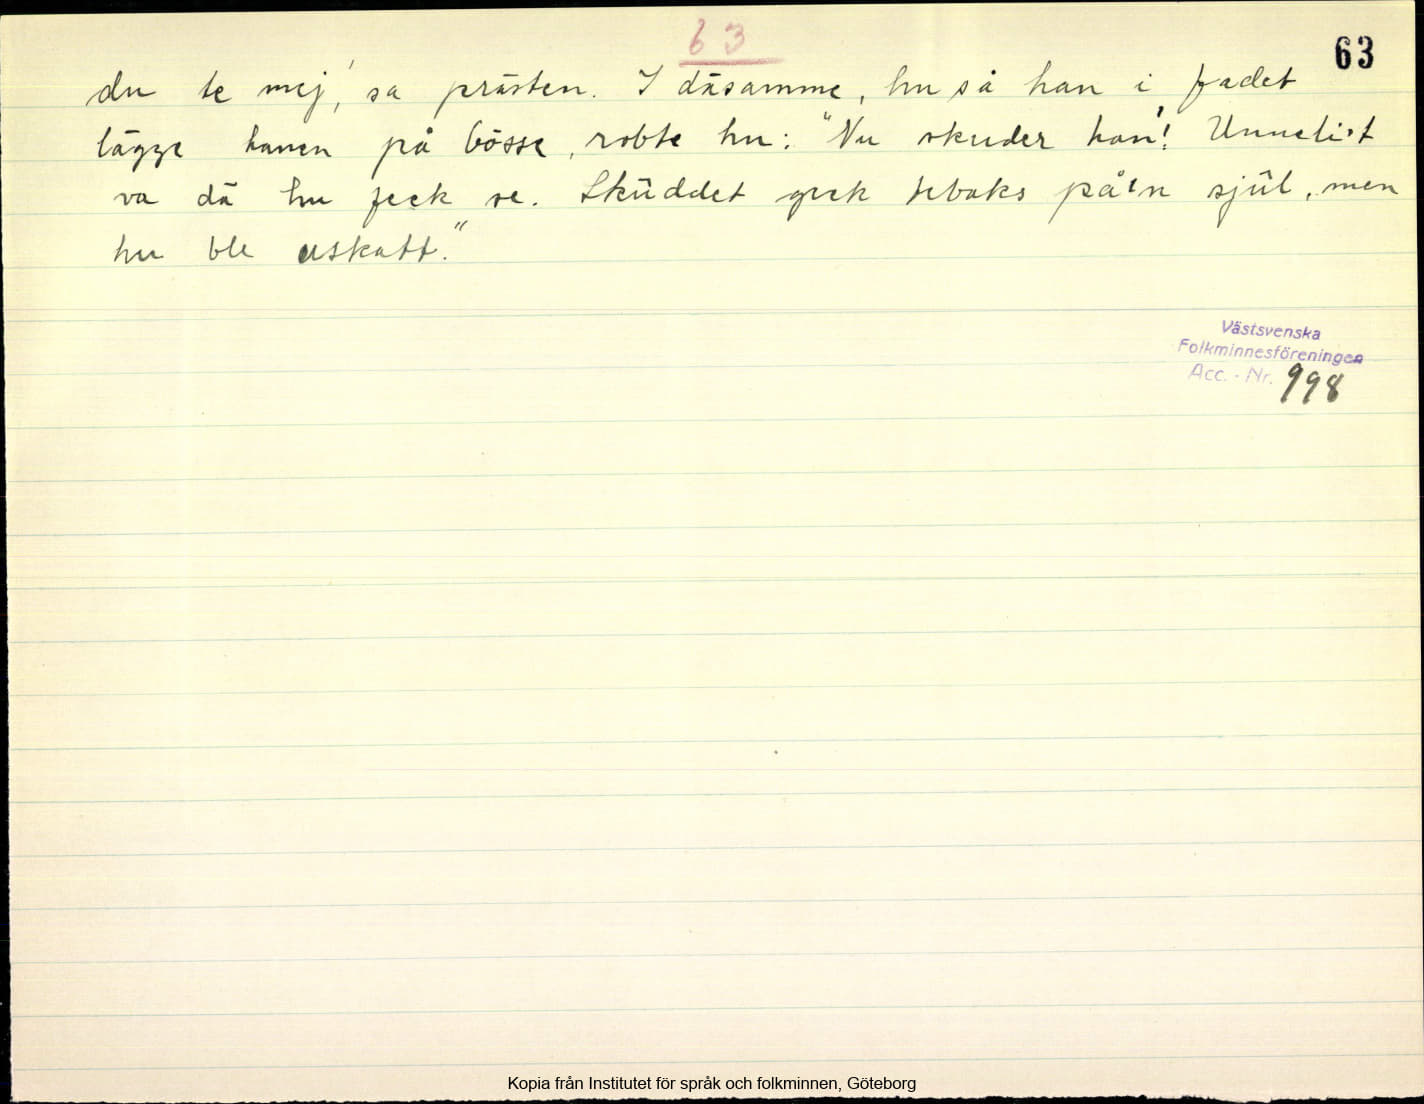 63
63
du te mej', sa prästen. I däsamme, hu så han i fadet
lägge hanen på bösse, robte hu: "Nu skuder han'! Unnelist
va dä hu feck se. Skûddet geck tebaks på'n sjûl, men
hu ble uskatt."
Västsvenska
Folkminnesföreningen
Acc. - Nr. 998
Kopia från Institutet för språk och folkminnen, Göteborg